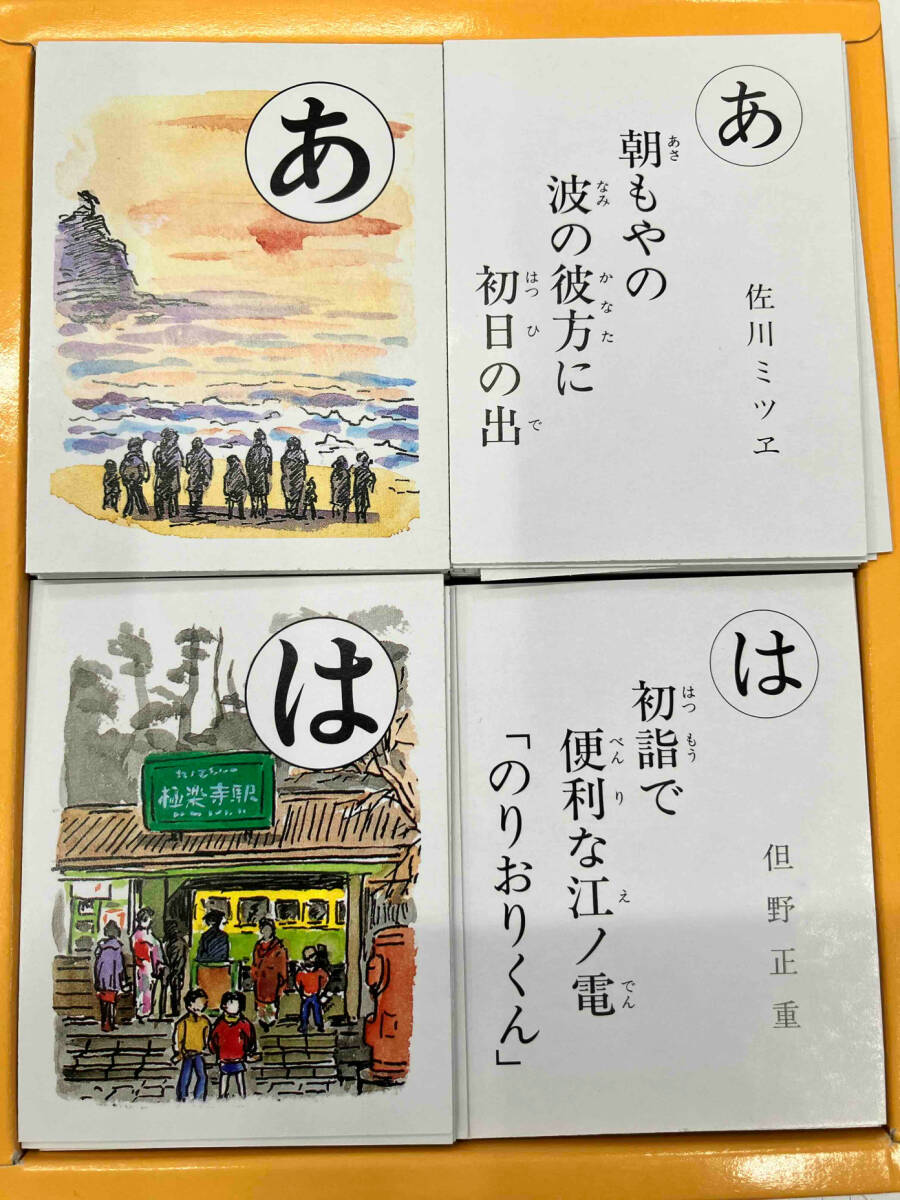 あ
あ
朝もやの
波の彼方に
初日の出
佐川ミツヱ
は
極楽寺駅
は
初詣で
便利な江ノ電
「のりおりくん」
但野正重